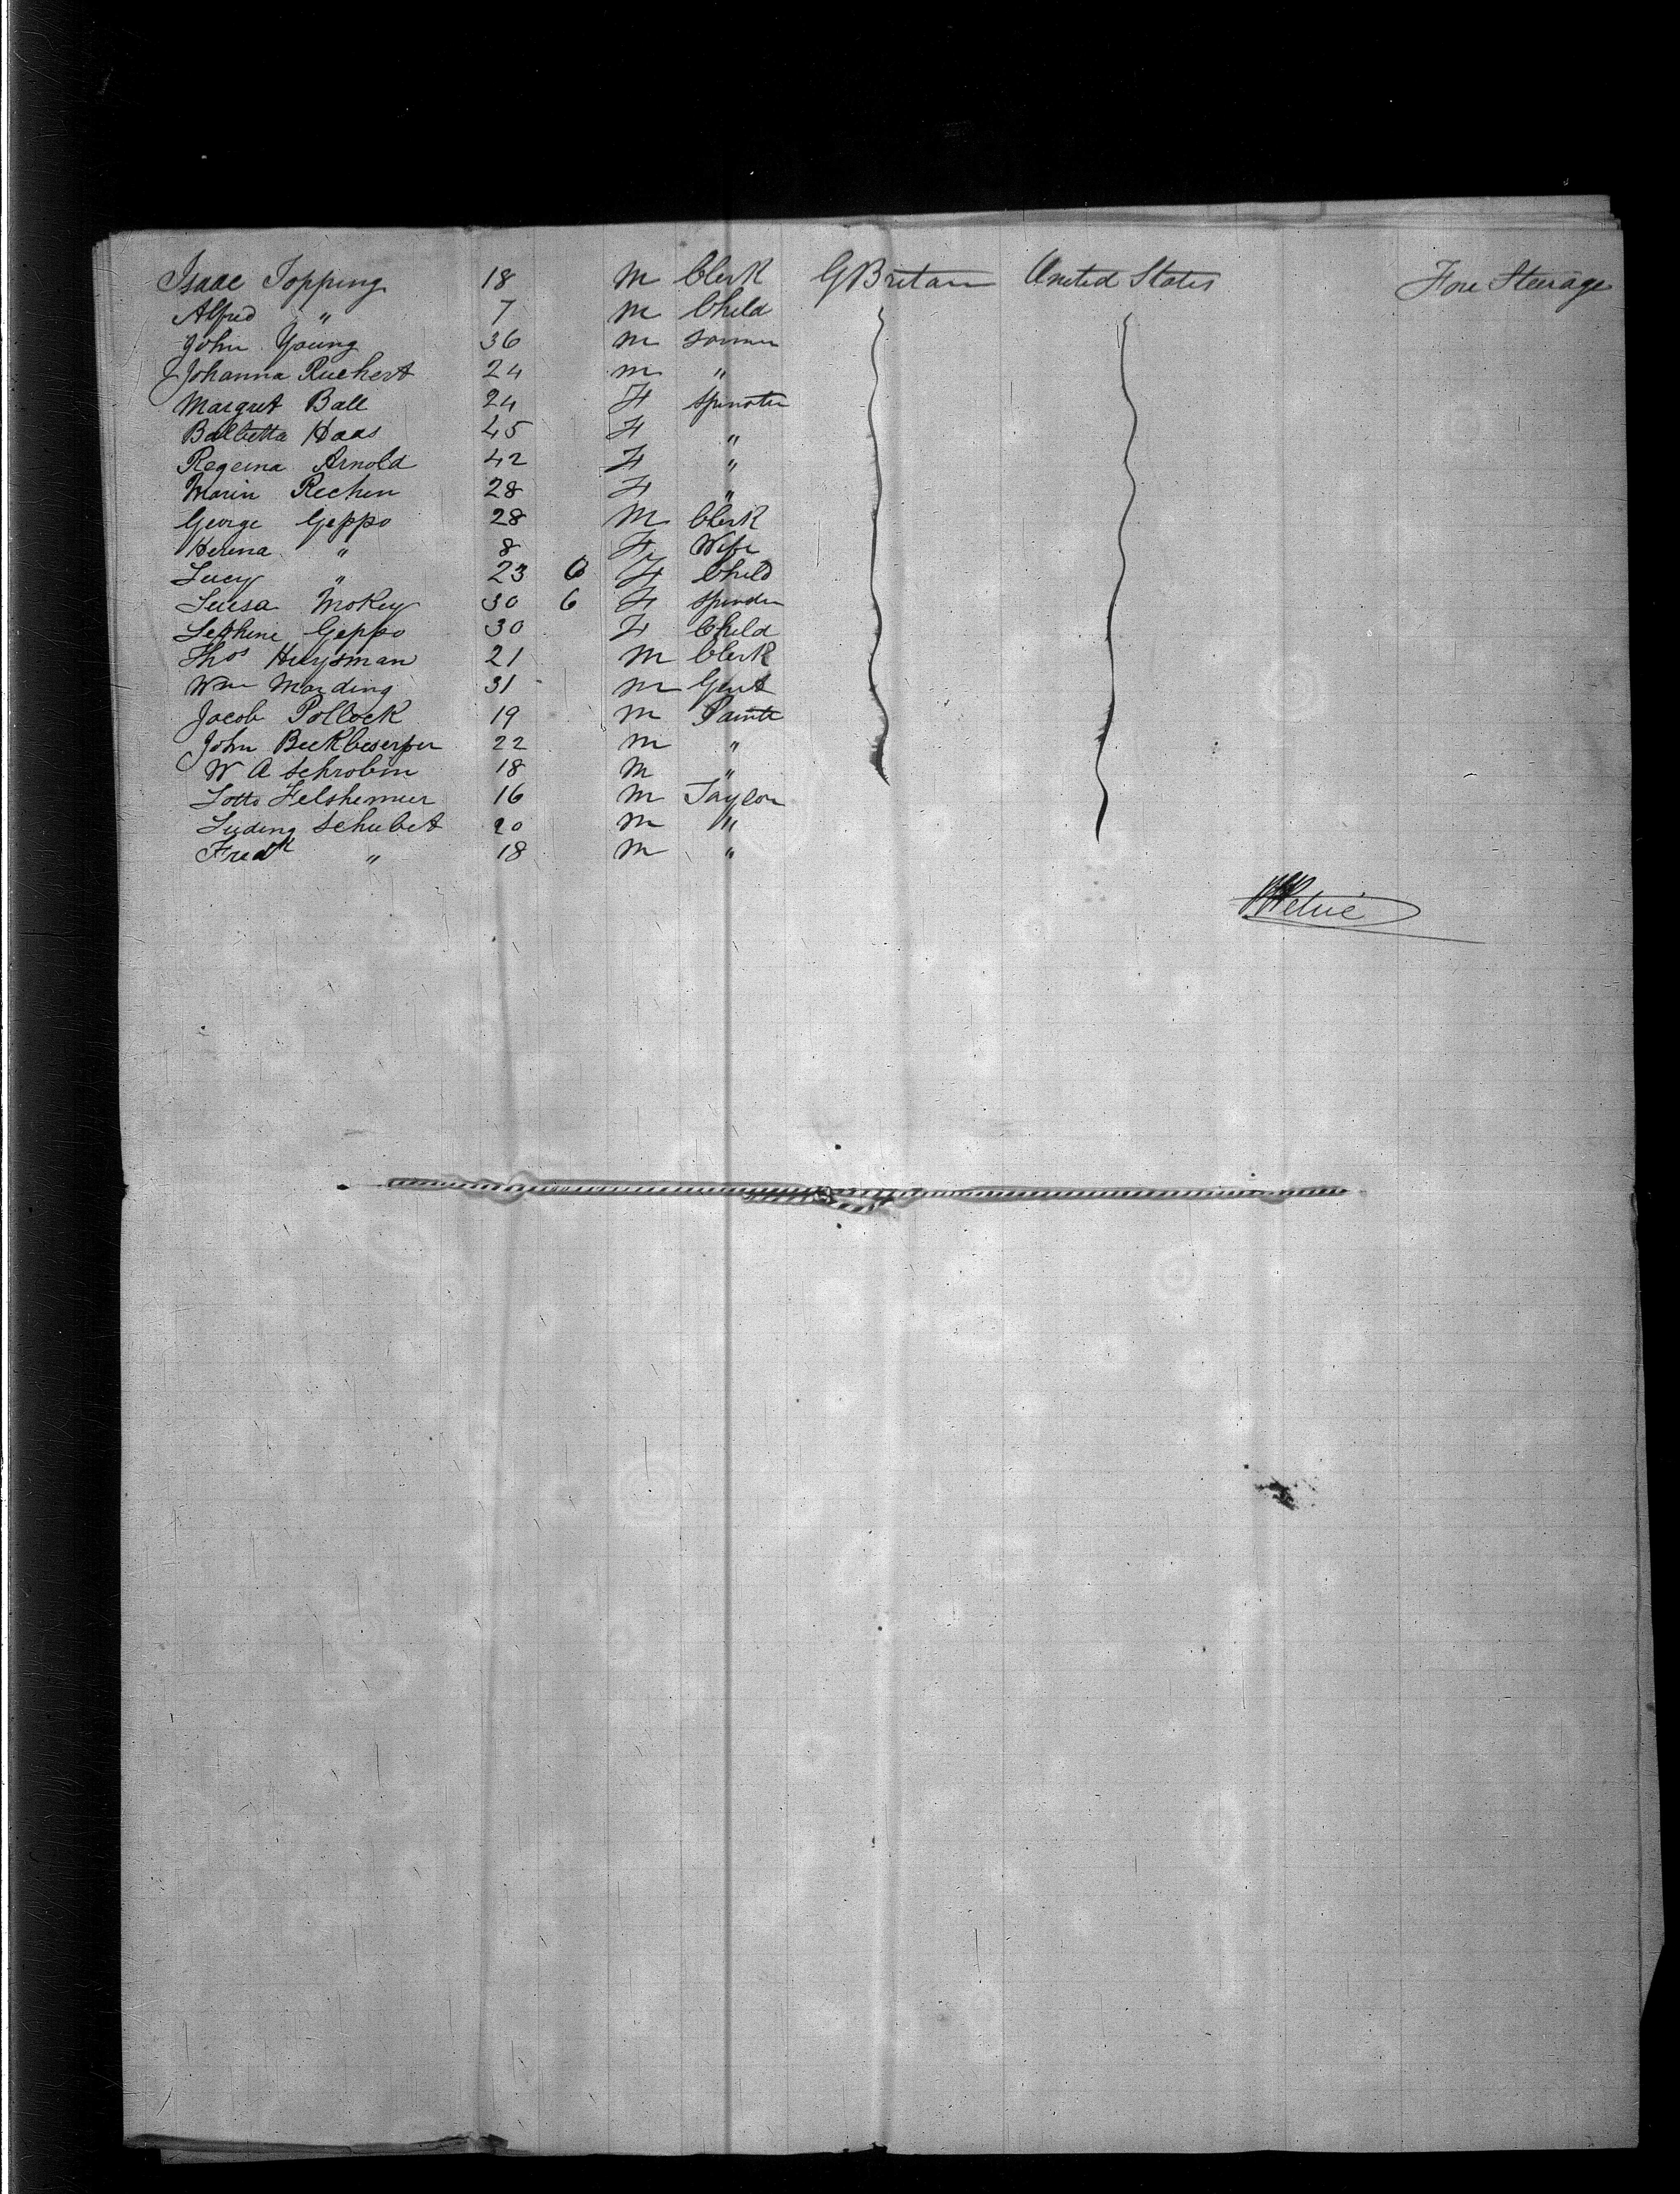 Isaac Topping 18 M Clerk G Britain United States Fore Steerage
Alfred " 7 M Child
John Young 36 M
Johanna Ruchert 24 M "
Margret Ball 24 F Spinster
Balbetta Haas 45 F "
Regeina Arnold 42 F "
Marin Rechen 28 F "
George Geppo 28 M Clerk
Herena " 8 F Wife
Lucy " 23 6 F Child
Luisa McKey 30 6 F
Sethine Geppo 30 F Child
Thos Huysman 21 M Clerk
Wm Marding 31 M Gent
Jacob Pollock 19 M Painte
John 22 M "
W A Schrobin 18 M "
Lotto Felshemier 16 M Taylor
Luding Schubet 20 M "
Fredk " 18 M "